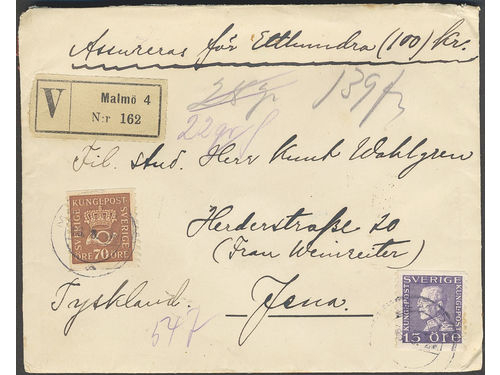 Assureras för Etthundra (100) kr.
V
Malmö 4
N:r 162
139 gr
Fil. stud. Herr Knut Wahlgren
Herderstraße 20
(Frau Weinreiter)
Tyskland.
Jena.
547
SVERIGE KUNGLPOST SVERIGE
ÖRE 70 ÖRE
SVERIGE
KUNGLPOST KUNGLPOST
15 ÖRE